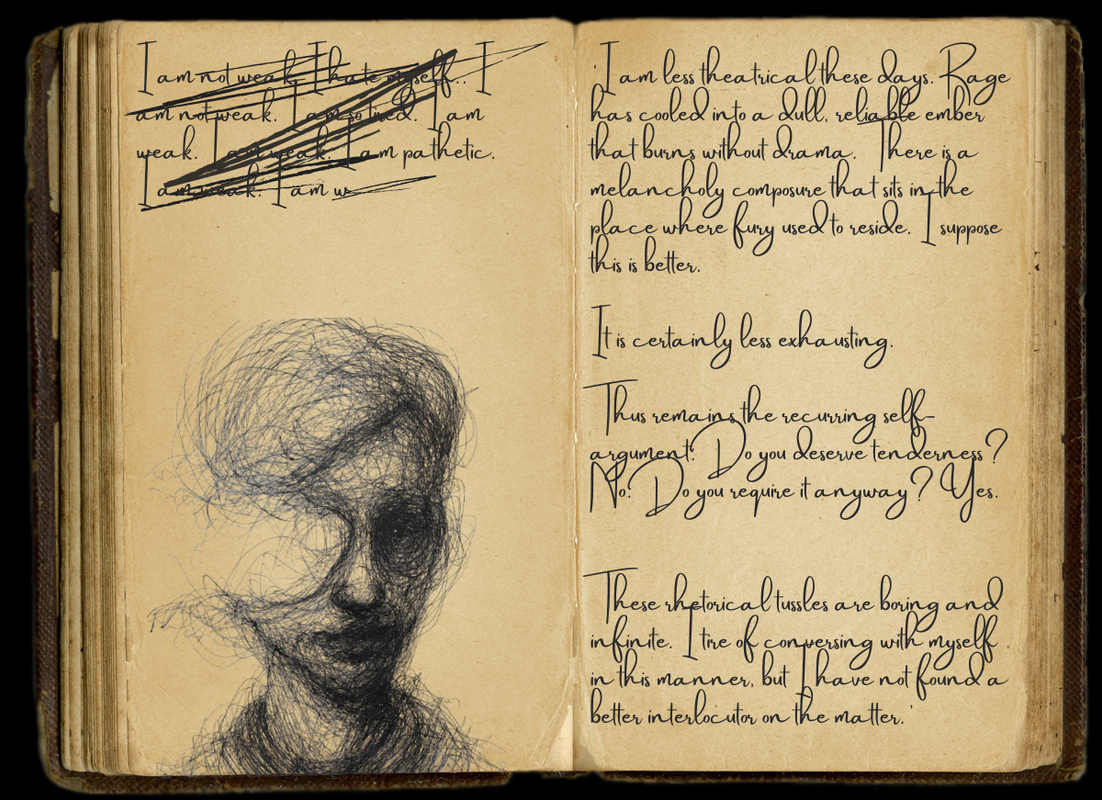 I am not weak. I hate myself.. I
am not weak. I am so tired. I am
weak. I am weak. I am pathetic.
I am weak. I am we
I am less theatrical these days. Rage
has cooled into a dull, reliable ember
that burns without drama. There is a
melancholy composure that sits in the
place where fury used to reside. I suppose
this is better.
It is certainly less exhausting.
Thus remains the recurring self-
argument: Do you deserve tenderness?
No. Do you require it anyway? Yes.
These rhetorical tussles are boring and
infinite. I tire of conversing with myself
in this manner, but I have not found a
better interlocutor on the matter.